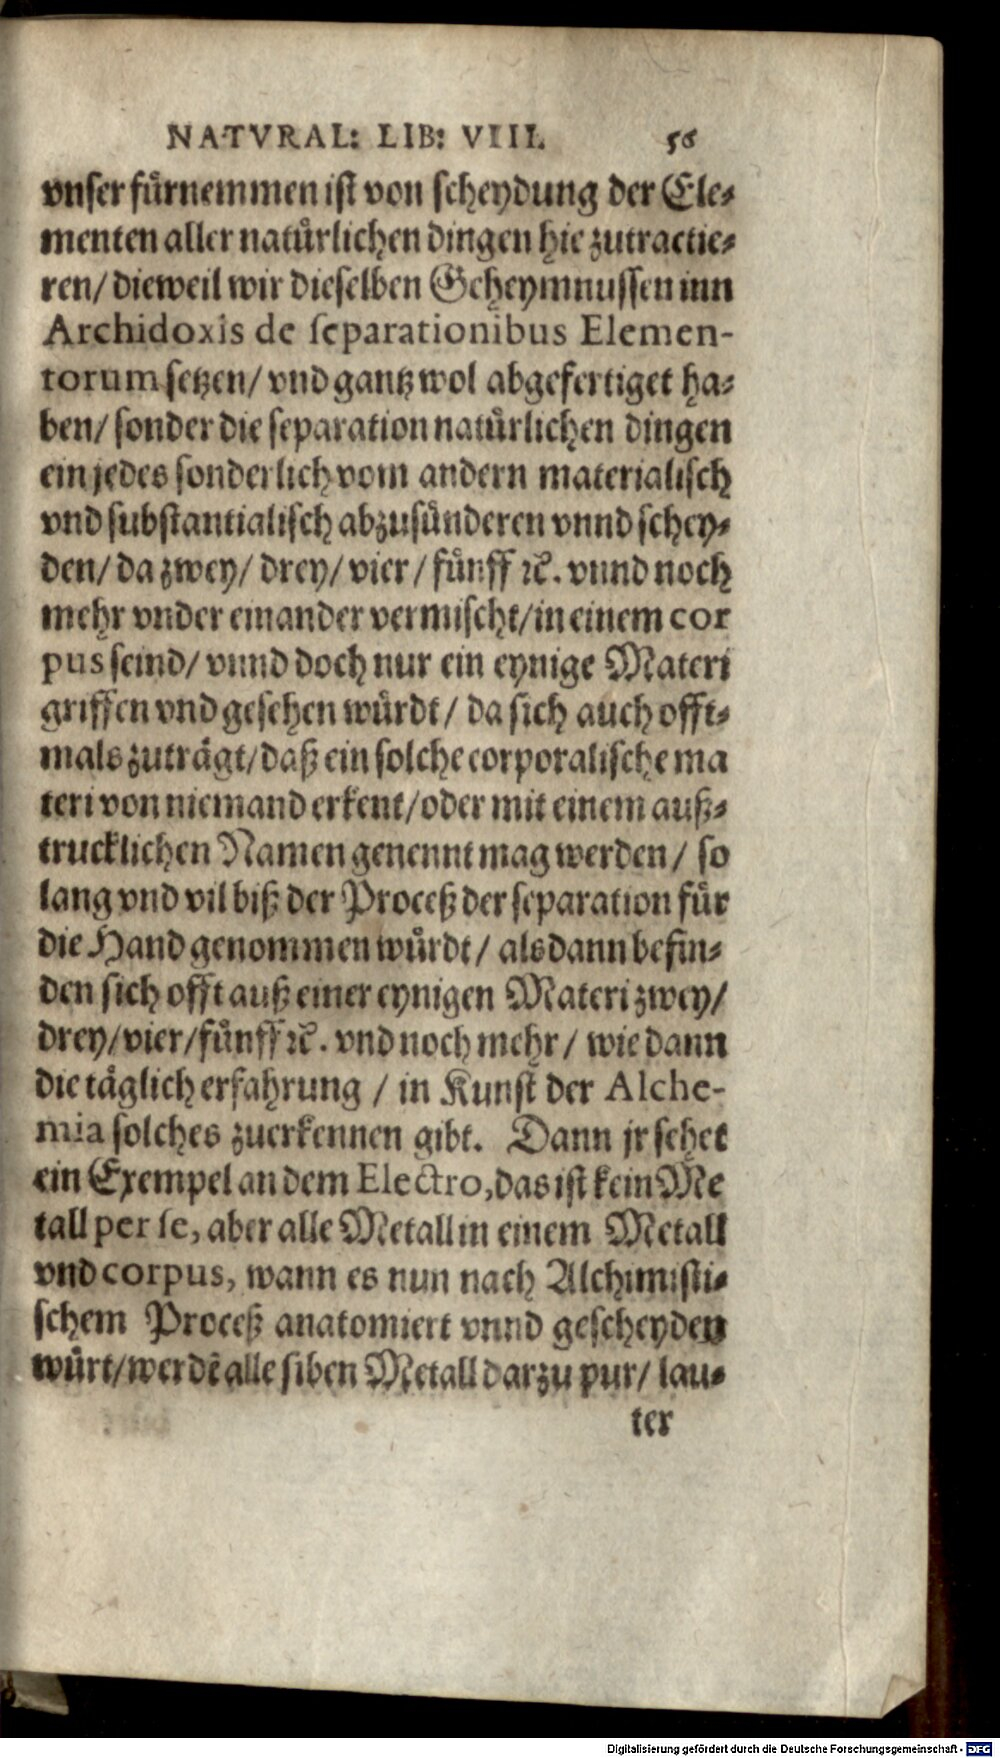 NATVRAL: LIB: VIII. 56
vnser fürnemmen ist von scheydung der Ele-
menten aller natürlichen dingen hie zutractie-
ren/ dieweil wir dieselben Geheymnussen inn
Archidoxis de separationibus Elemen-
torum setzen/ vnd gantz wol abgefertiget ha-
ben/ sonder die separation natürlichen dingen
ein jedes sonderlich vom andern materialisch
vnd substantialisch abzusünderen vnnd schey-
den/ da zwey/ drey/ vier/ fünff ꝛc. vnnd noch
mehr vnder einander vermischt/ in einem cor
pus seind/ vnnd doch nur ein eynige Materi
griffen vnd gesehen würdt/ da sich auch offt-
mals zuträgt/ daß ein solche corporalische ma
teri von niemand erkent/ oder mit einem auß-
trucklichen Namen genennt mag werden/ so
lang vnd vil biß der Proceß der separation für
die Hand genommen würdt/ als dann befin-
den sich offt auß einer eynigen Materi zwey/
drey/ vier/ fünff ꝛc. vnd noch mehr/ wie dann
die täglich erfahrung / in Kunst der Alche-
mia solches zuerkennen gibt. Dann jr sehet
ein Exempel an dem Electro, das ist kein Me
tall per se, aber alle Metall in einem Metall
vnd corpus, wann es nun nach Alchimisti-
schem Proceß anatomiert vnnd gescheyden
würt/ werdē alle siben Metall darzu pur/ lau-
ter
Digitalisierung gefördert durch die Deutsche Forschungsgemeinschaft - DFG